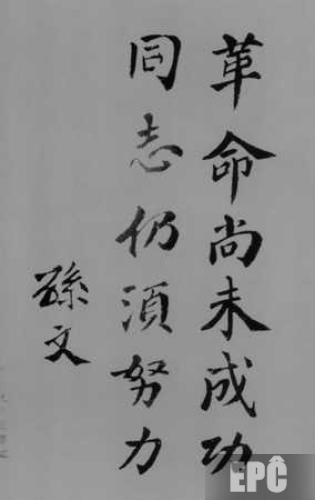 革命尚未成功
同志仍須努力
孫文
EPC